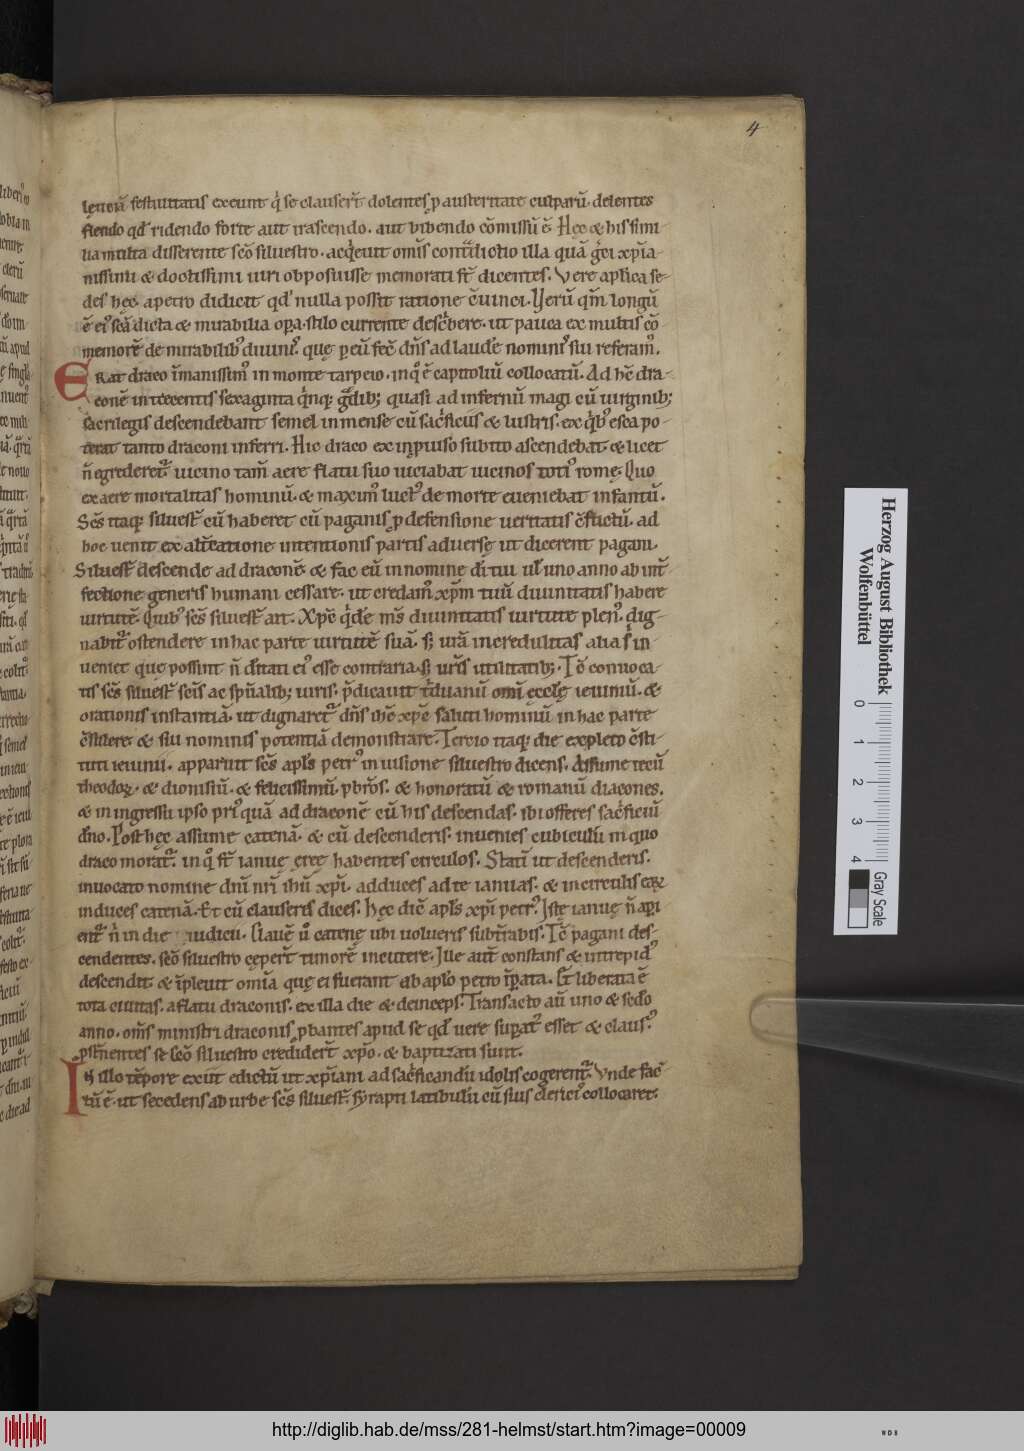 4
lętitiā festiuitatis exeunt q̇ se clauser̄t dolentes p austeritate culparū. delentes
flendo qd̄ ridendo forte aut irascendo. aut bibendo cōmissū ē. Hęc & his simi-
lia multa disserente sc̄o siluestro. acq̇eu͛it om̄is cont̄dictio illa quā g̊ci xp̄ia-
nissimi & doctissimi uiri obposuisse memorati st̄ dicentes. Vere aplica se-
des hęc. a petro didicit qd̄ nulla possit ratione c̄uinci. Verū qm̄ longū
ē ei᷒ sc̄a dicta & mirabilia opa. stilo currente desc̊bere. ut pauca ex multis cō
memorē de mirabilib᷒ diuini᷒. quę p eū fec̄ dn̄s ad laudē nomini᷒ sui referam᷒.
Erat draco īmanissim᷒ in monte tarpeio. in q̊ ē capitoliū collocatū. Ad hc̄ dra-
conē in trecentis sexaginta q̇nq; g̊dib; quasi ad infernū magi cū uirginib;
sacrilegis descendebant semel in mense cū sac̊ficiis & lustris. ex q̇b᷒ esca po-
terat tanto draconi inferri. Hic draco ex inpuiso subito ascendebat & licet
n̄ egrederet᷑ uicino tam̄ aere flatu suo uiciabat uicinos toti᷒ romę. Quo
ex aere mortalitas hominū. & maxim᷒ luct᷒ de morte eueniebat infantū.
Sc̄s itaq; siluest̄ cū haberet cū paganis p defensione ueritatis c̄flictū. ad
hoc uenit ex alt̄catione intentionis partis aduersę ut dicerent pagani.
Siluest̄ descende ad draconē. & fac eū in nomine dī tui ul̄ uno anno ab int̄
fectione generis humani cessare. ut credam᷒ xp̄m tuū diuinitatis habere
uirtutē. Quib᷒ sc̄s siluest̄ ait. Xpc̄ q̇dē m̄s diuinitatis uirtute plen᷒. dig-
nabit᷑ ostendere in hac parte uirtutē suā. s; urā incredulitas alia s̄ in-
ueniet que possint n̄ d̄itati ei᷒ esse contraria. s; ur̄is utilitatib;. Tc̄ conuoca-
tis sc̄s siluest̄ sc̄is ac spu̅alib; uiris. p̄dicauit t̄duanū om̄i ęcclę ieiuniū. &
orationis instantiā. ut dignaret᷑ dn̄s ihc̄ xpc̄ saluti hominū in hac parte
c̄sulere. & sui nominis potentiā demonstrare. Tercio itaq; die expleto c̄sti-
tuti ieiunii. apparuit sc̄s apl̄s petr᷒ in uisione siluestro dicens. Assume tecū
theodoꝝ. & dionisiū. & felicissimū. pbr̄os. & honoratū & romanū diacones.
& in ingressu ipso pri᷒quā ad draconē cū his descendas. ibi offeres sac̊ficiū
dn̄o. Post hęc assume catenā. & cū descenderis. inuenies cubiculū in quo
draco morat᷑. in q̊ st̄ ianuę ęreę habentes circulos. Statī ut descenderis.
inuocato nomine dn̄i nr̄i ihū xp̄i. adduces ad te ianuas. & in circulis eaꝝ
induces catenā. Et cū clauseris dices. Hęc dic̄ apl̄s xp̄i petr᷒. Istę ianuę n̄ api
ent᷑ n̄ in die iudicii. Clauē ů catenę ubi uolueris subt̄rabis. Tc̄ pagani des-
cendentes. sc̄o siluestro cęper̄t timorē incutere. Ille aut̄ constans & intrepid᷒
descendit. & īpleuit om̄ia quę ei fuerant ab apl̄o petro īpata. Et liberata ē
tota ciuitas. a flatu draconis. ex illa die & deinceps. Transacto aū uno & sc̄do
anno. om̄s ministri draconis pbantes apud se qd̄ uere supat᷒ esset & claus᷒.
pst̄nentes se sc̄o siluestro credider̄t xp̄o. & baptizati sunt.
In illo tēpore exiit edictū ut xp̄iani ad sac̊ficandū idolis cogerent᷑. Vnde fac̄
tū ē. ut secedens ab urbe sc̄s siluest̄. syrapti latibulū cū suis clerici᷒ collocaret.
Herzog August Bibliothek
Wolfenbüttel
0 1 2 3 4
Gray Scale
http://diglib.hab.de/mss/281-helmst/start.htm?image=00009